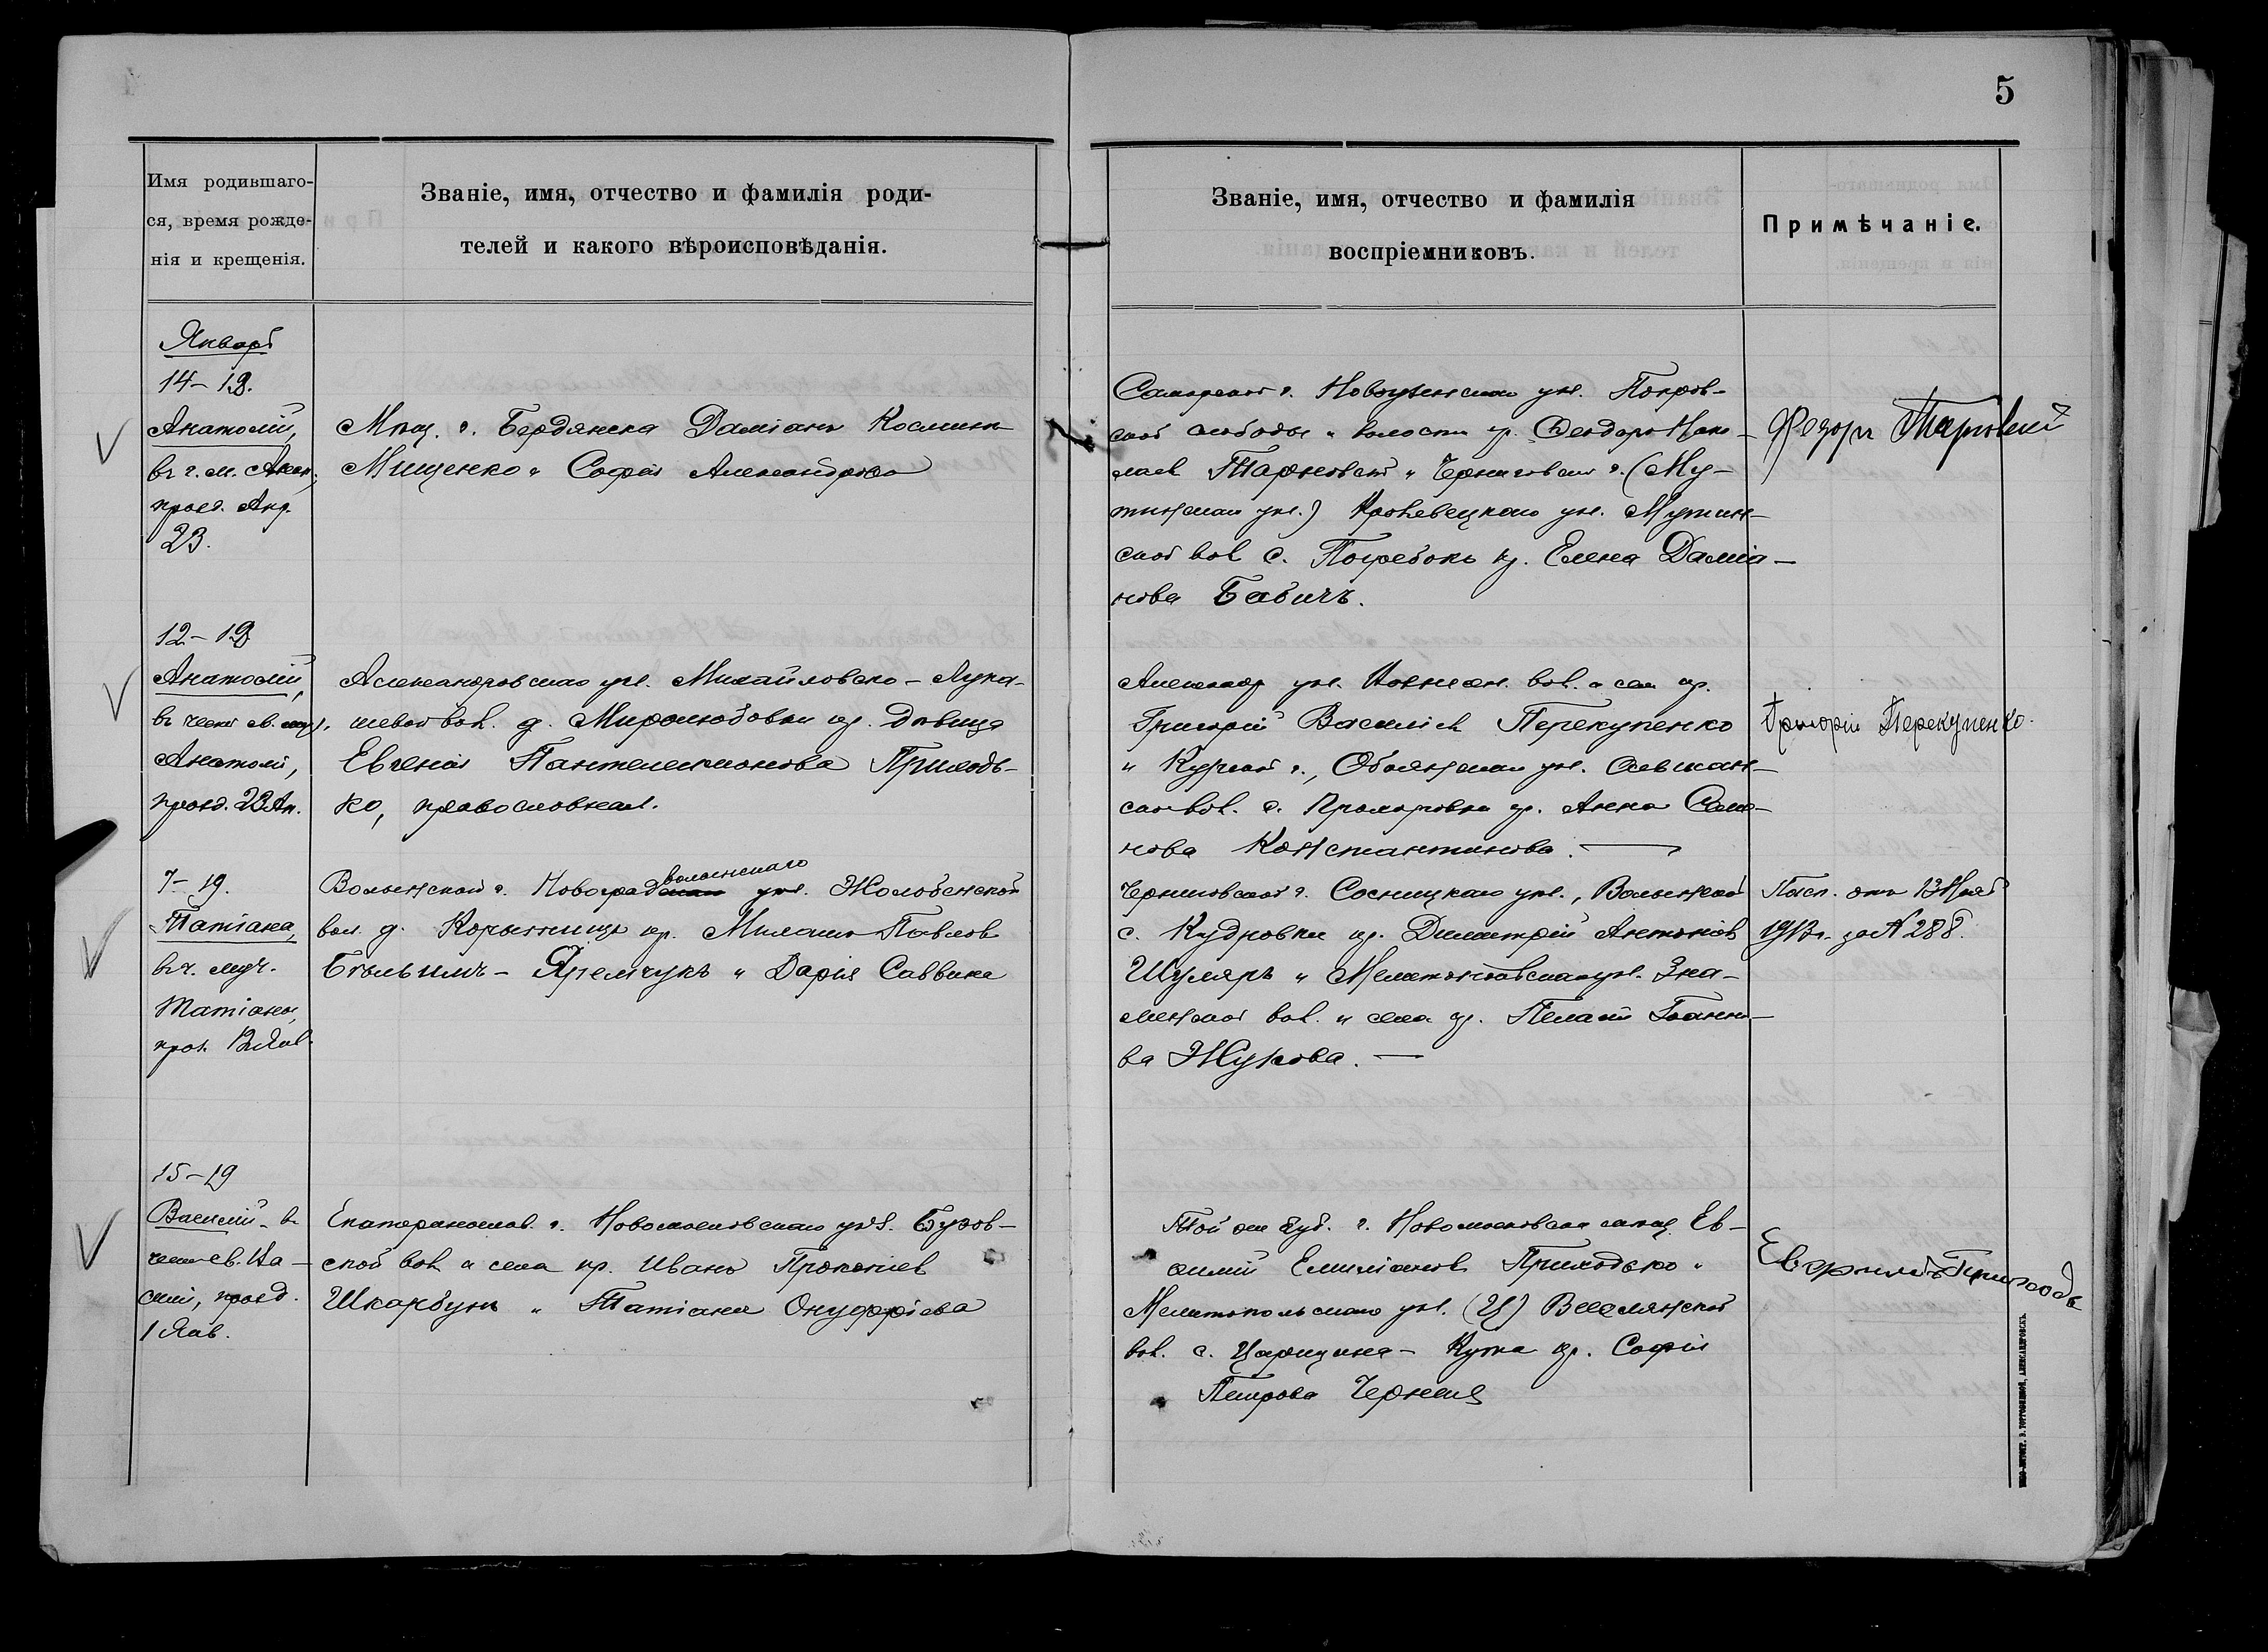 5
Имя родившаго-
ся, время рожде-
нія и крещенія.
Званіе, имя, отчество и фамилія роди-
телей и какого вѣроисповѣданія.
Званіе, имя, отчество и фамилія
воспріемниковъ.
Примѣчаніе.
Январь
14-19.
Анатолій,
въ ч. м. Анат.,
празд. Апр.
23.
Мѣщ. г. Бердянска Даміанъ Косминъ
Мищенко и Софія Александрова
Самарской г. Новоузенскаго уѣз. Покров-
ской слободы и волости кр. Ѳеодоръ Нико-
лаев Тарновскій и Черниговской г. (Му-
тинскаго уѣз.) Кролевецкаго уѣз. Мутин-
ской вол. с. Погребокъ кр. Елена Даміа-
нова Бабичъ.
Федоръ Тарновскій
12-19
Анатолій,
въ честь св. муч.
Анатолія,
празд. 23 Ап.
Александровскаго уѣз. Михайловско-Лука-
шевой вол. д. Миролюбовки кр. дѣвица
Евгенія Пантелеимонова Приходь-
ко, православная.
Александр. уѣз. вол. и села кр.
Григорій Василіев Перекупенко
и Курской г., Обоянскаго уѣз.
ской вол. с. кр. Анна Семе-
нова Константинова.
Григорій Перекупенко.
7-19.
Татіана,
въ ч. муч.
Татіаны,
праз. 12 Янв.
Волынской г. Новоградволынскаго уѣз. Жолобенской
вол. д. Корытнищи кр. Михаилъ Павлов
Бѣлымъ-Яремчукъ и Дарія Саввина
Черниговской г. Сосницкаго уѣз., Волынской
с. Кудровки кр. Димитрій Антонов
Шуляръ и Мелитопольскаго уѣз. Зна-
менской вол. и села кр. Пелагія Іоанно-
ва Жукова.
Пасп. отъ 13 Нояб
1913 г. за № 288.
15-19
Василій - въ
честь св. Ва-
силія, празд.
1 Янв.
Екатеринослав. г. Новомосковскаго уѣз. Бузов-
ской вол. и села кр. Иванъ Прокопіев
Шкарбунъ и Татіана Онуфріева
Той же губ. г. Новомосковска мѣщ. Ев-
ѳимій Емиліанов Приходько и
Мелитопольскаго уѣз. (Ц) Веселянской
вол. с. Царицина-Кута кр. Софія
Петрова Черная
Евфимій Приходь
ТИПО-ЛИТОГР. В. ТОРГОВИЦКОЙ, АЛЕКСАНДРОВСКЪ.